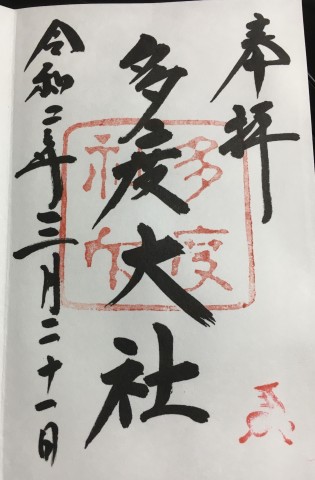 奉拝
多度大社
令和二年三月二十一日
多度